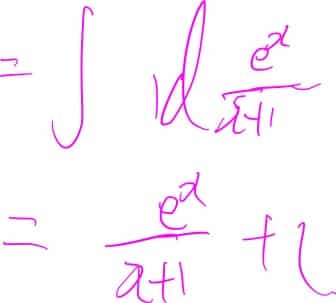 = ∫ 1d e^x/(x+1)
= e^x/(x+1) + C